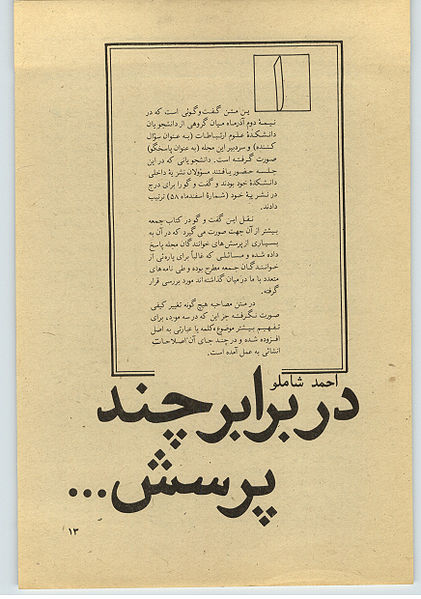 ا
ین متن گفت‌وگوئی است که در
نیمهٔ دوم آذرماه میان گروهی از دانشجویان
دانشکدهٔ علوم ارتباطات (به عنوان سؤال
کننده) و سردبیر این مجله (به عنوان پاسخگو)
صورت گرفته است. دانشجویانی که در این
جلسه حضور یافتند مسؤولان نشریهٔ داخلی
دانشکدهٔ خود بودند و گفت و گو را برای درج
در نشریهٔ خود (شمارهٔ اسفندماه ۵۸) ترتیب
دادند.
نقل این گفت و گو در کتاب جمعه
بیشتر از آن جهت صورت می گیرد که در آن به
بسیاری از پرسش های خوانندگان مجله پاسخ
داده شده و مسائلی که غالباً برای پاره‌ئی از
خوانندگان جمعه مطرح بوده و طی نامه‌های
متعدد با ما در میان گذاشته‌اند مورد بررسی قرار
گرفته.
در متن مصاحبه هیچ گونه تغییر کیفی
صورت نگرفته جز این که در سه مورد، برای
تفهیم بیشتر موضوع، کلمه یا عبارتی به اصل
افزوده شده و در چند جای آن اصلاحات
انشائی به عمل آمده است.
احمد شاملو
در برابر چند
پرسش...
۱۳